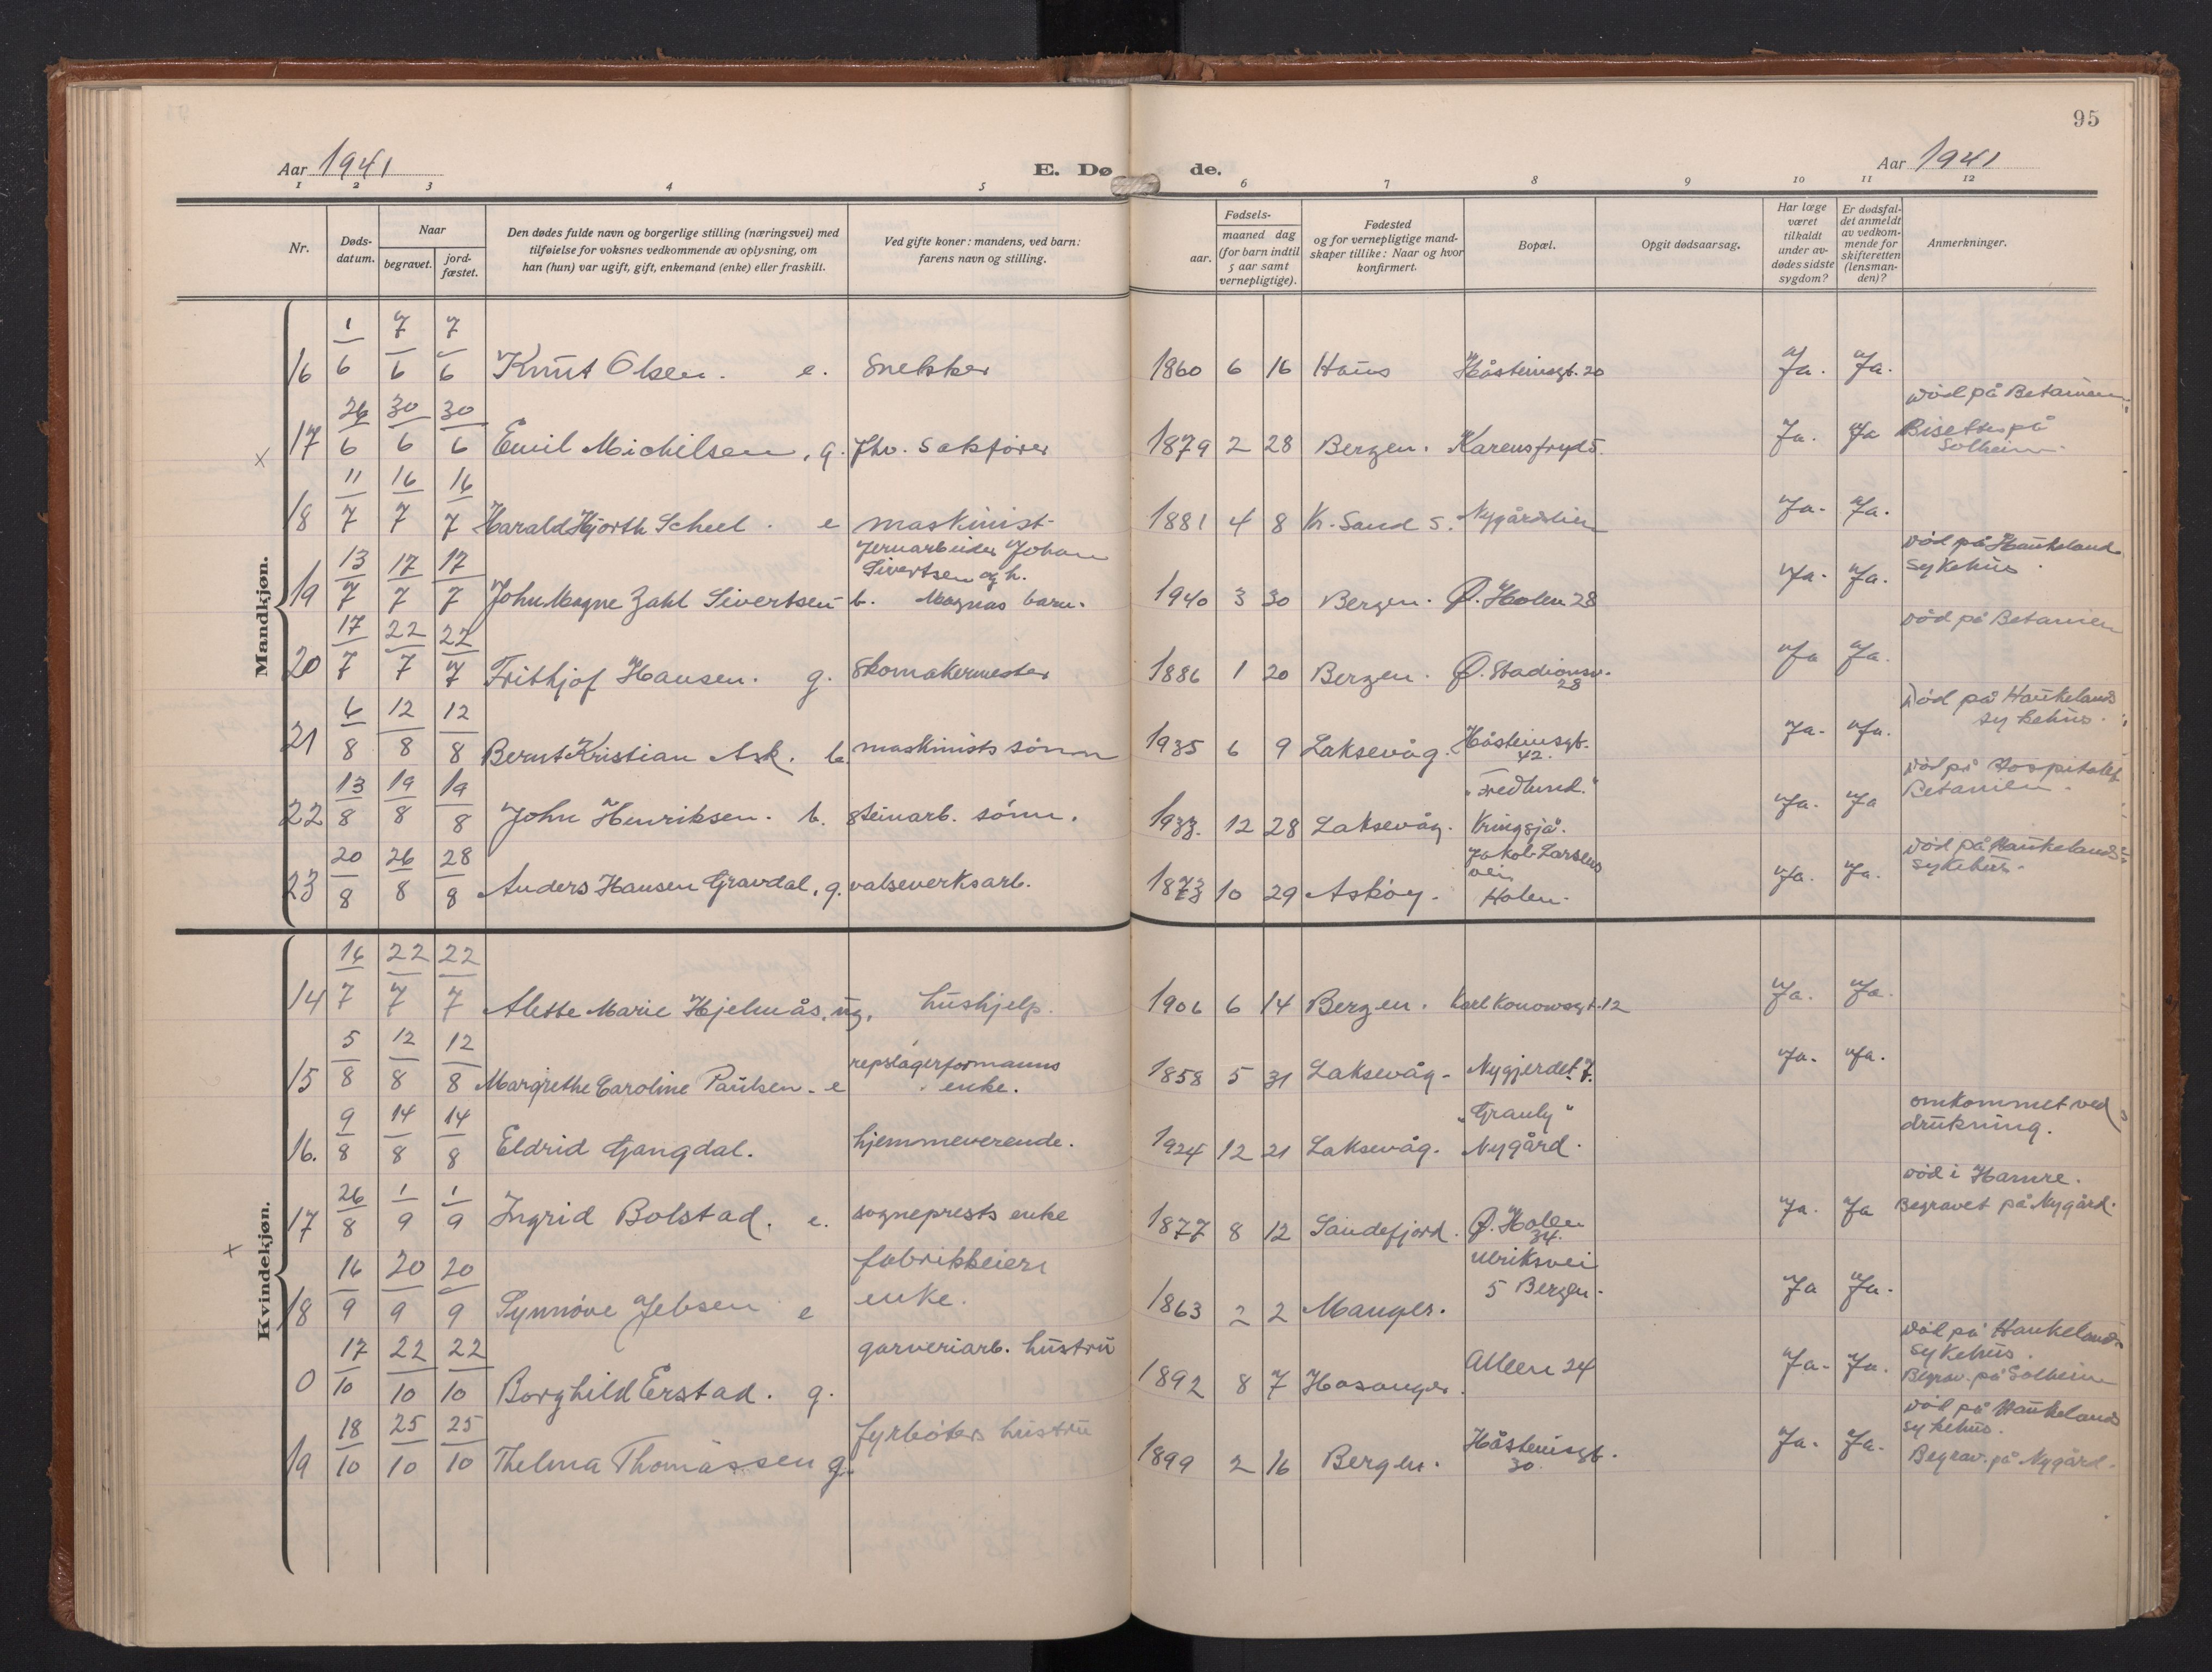 95
Aar 1941 E. Dø de. Aar 1941
1 2 3 4 5 6 7 8 9 10 11 12
Nr.
Døds-
datum.
Naar
begravet.
jord-
fæstet.
Den dødes fulde navn og borgerlige stilling (næringsvei) med
tilføielse for voksnes vedkommende av oplysning, om
han (hun) var ugift, gift, enkemand (enke) eller fraskilt.
Ved gifte koner: mandens, ved barn:
farens navn og stilling.
Fødsels-
aar.
maaned dag
(for barn indtil
5 aar samt
vernepligtige).
Fødested
og for vernepligtige mand-
skaper tillike: Naar og hvor
konfirmert.
Bopæl.
Opgit dødsaarsag.
Har læge
været
tilkaldt
under av-
dødes sidste
sygdom?
Er dødsfal-
det anmeldt
av vedkom-
mende for
skifteretten
(lensman-
den)?
Anmerkninger.
Mandkjøn.
1 7 7
16 6 6 6 Knut Olsen. e. Snekker 1860 6 16 Haus Håsteinsgt. 20 Ja. Ja.
død på Betanien
26 30 30
x 17 6 6 6 Emil Michelsen, g. fhv. Sakfører 1879 2 28 Bergen. Karensfryd 5. Ja. Ja Bisettes på
Solheim.
11 16 16
18 7 7 7 Harald Hjorth Scheel. e maskinist 1881 4 8 Kr. Sand S. Nygårdslien Ja. Ja.
Jernarbeider Johan
Sivertsen og h.
død på Haukeland
sykehus.
13 17 17
19 7 7 7 John Magne Zahl Sivertsen b. Magnas barn. 1940 3 30 Bergen. Ø. Holen 28 Ja. Ja.
død på Betanien
17 22 22
20 7 7 7 Frithjof Hansen. g. Skomakermester 1886 1 20 Bergen. Ø. Stadionsv.
28 Ja Ja.
Død på Haukelands
sykehus.
6 12 12
21 8 8 8 Bernt Kristian Ask. b. maskinists sønn 1935 6 9 Laksevåg. Håsteinsgt.
42. Ja. Ja.
død på Hospitalet
Betanien.
13 19 19
22 8 8 8 John Henriksen. b. steinarb. sønn. 1933. 12 28 Laksevåg. "Fredlund."
Kringsjå. Ja. Ja
død på Haukelands
sykehus.
20 26 28
23 8 8 8 Anders Hansen Gravdal, g. valseverksarb. 1873 10 29 Askøy. Jakob Larsens
vei
Holen. Ja. Ja.
Kvindekjøn.
16 22 22
14 7 7 7 Alette Marie Hjelmås, ug. hushjelp. 1906 6 14 Bergen. Karl Konowsgt. 12 Ja. Ja.
5 12 12
15 8 8 8 Margrethe Caroline Paulsen. e repslagerformanns
enke. 1858 5 31 Laksevåg. Nygjerdet 7. Ja. Ja.
9 14 14
16. 8 8 8 Eldrid Gangdal. hjemmeverende. 1924 12 21 Laksevåg. "Granly"
Nygård. omkommet ved
drukning.
26 1 1
17 8 9 9 Ingrid Bolstad. e. sogneprests enke 1877 8 12 Sandefjord. Ø. Holen
34. Ja. Ja død i Hamre.
Begravet på Nygård.
x
16 20 20
18 9 9 9 Synnøve Jebsen e fabrikkeiers
enke. 1863 2 2 Manger. Ulriksvei
5 Bergen. Ja Ja.
17 22 22
0 10 10 10 Borghild Erstad. g. garveriarb. hustru 1892 8 7 Hosanger. Alleen 24 Ja. Ja. død på Haukelands
sykehus.
Begrav. på Solheim
18 25 25
19 10 10 10 Thelma Thomassen g. fyrbøters hustru 1899 2 16 Bergen. Håsteinsgt.
30. Ja. Ja. død på Haukelands
sykehus.
Begrav. på Nygård.